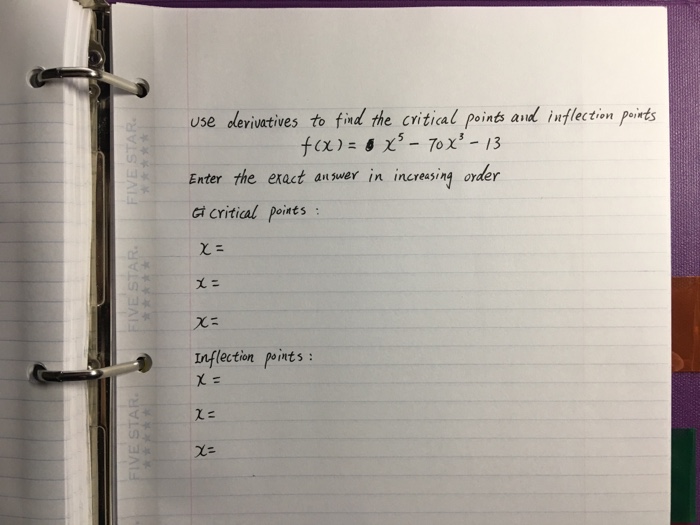 Use derivatives to find the critical points and inflection points
f(x) = x⁵ - 70x³ - 13
Enter the exact answer in increasing order
critical points :
x =
x =
x =
Inflection points :
x =
x =
x =
FIVE STAR.
FIVE STAR.
FIVE STAR.